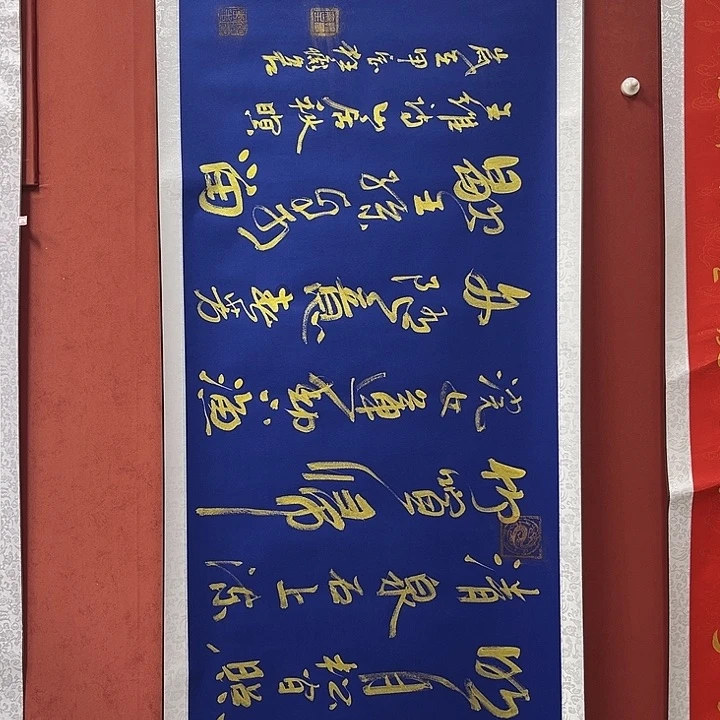 明月松間照
清泉石上流
竹喧歸
浣女蓮動漁
舟下隨意春芳
歇王孫自可留
王維詩山居秋暝
歲至甲辰